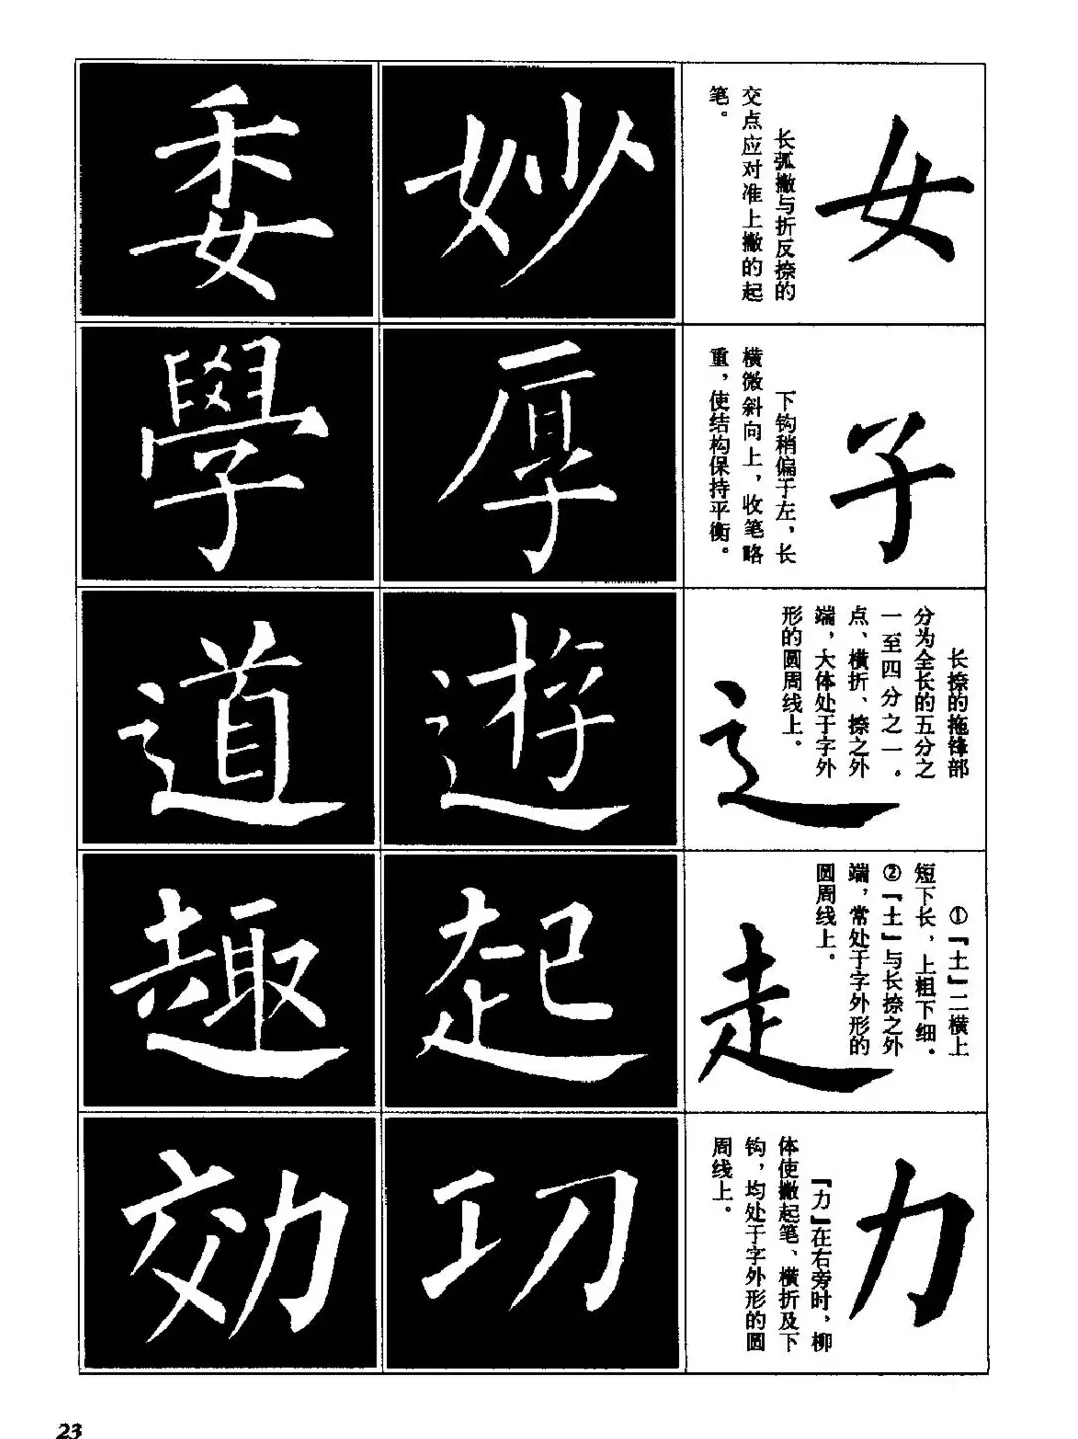 女
长弧撇与折反捺的
交点应对准上撇的起
笔。
妙
委
子
下钩稍偏于左，长
横微斜向上，收笔略
重，使结构保持平衡。
厚
學
辶
长捺的拖锋部
分为全长的五分之
一至四分之一．
点、横折、捺之外
端，大体处于字外
形的圆周线上。
遊
道
走
①『土』二横上
短下长，上粗下细．
②『土』与长捺之外
端，常处于字外形的
圆周线上。
起
趣
力
『力』在右旁时，柳
体使撇起笔、横折及下
钩，均处于字外形的圆
周线上。
功
効
23